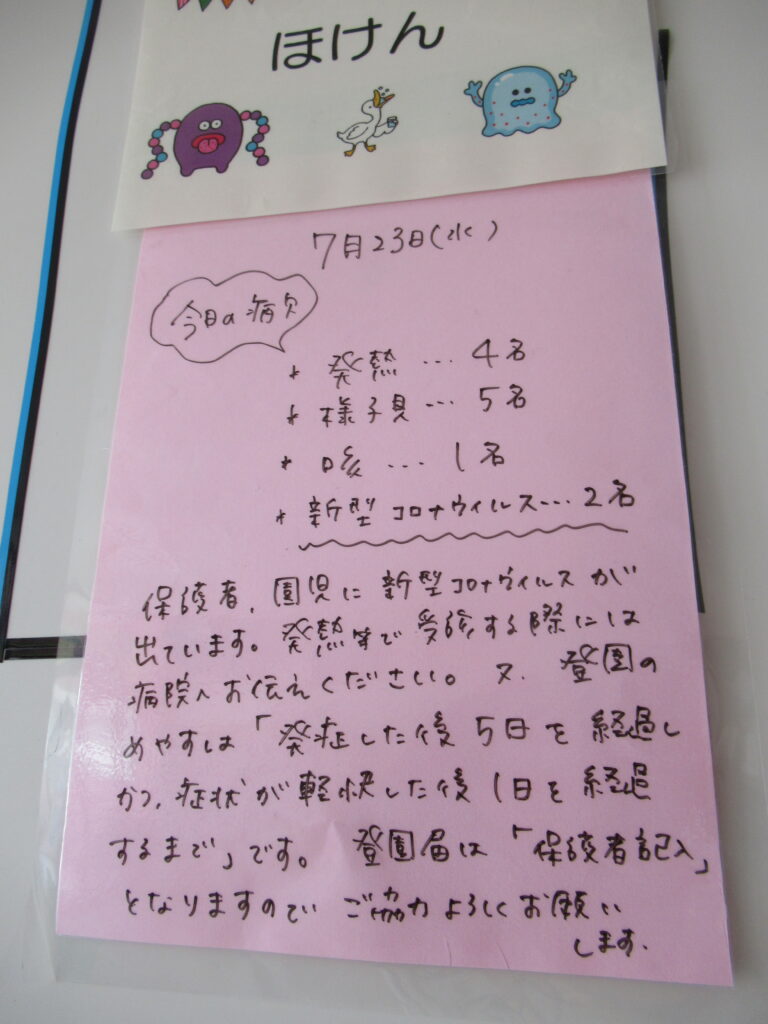 ほけん
7月23日(水)
今日の病欠
* 発熱 … 4名
* 様子見 … 5名
* 咳 … 1名
* 新型コロナウイルス… 2名
保護者、園児に新型コロナウイルスが
出ています。発熱等で受診する際には
病院へお伝えください。又、登園の
めやすは「発症した後5日を経過し
かつ、症状が軽快した後1日を経過
するまで」です。登園届は「保護者記入」
となりますのでご協力よろしくお願い
します.